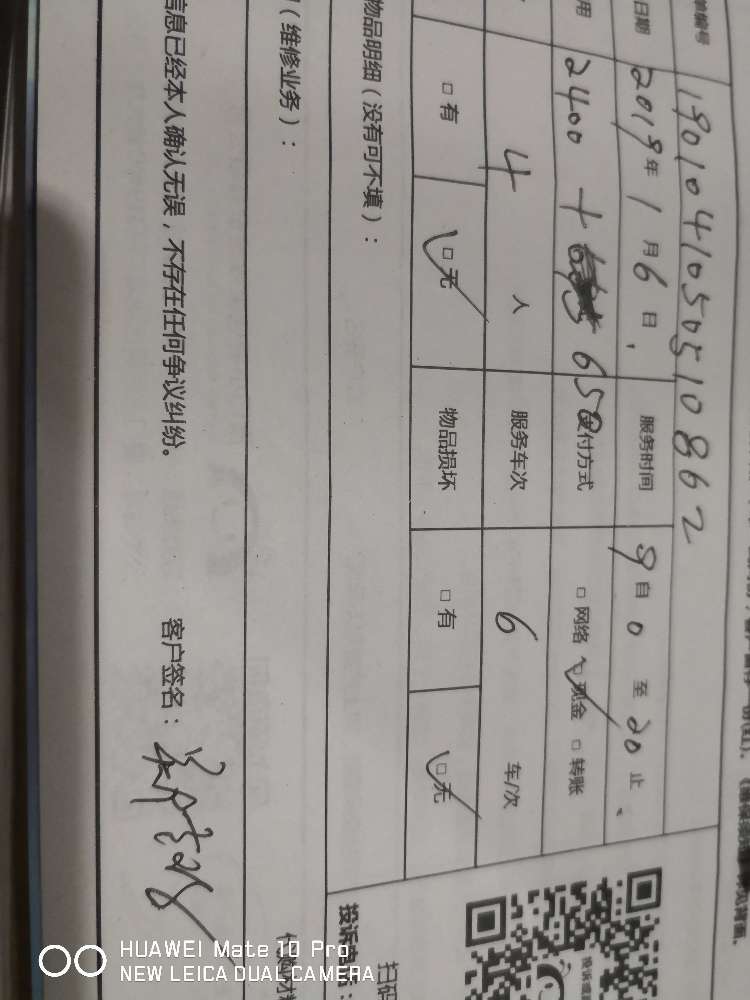 单编号 1901041050510862
日期 2019年1月6日 服务时间 9自0至20止
用 2400 + 650 支付方式 □网络 □现金 □转账
4 人 服务车次 6 车/次
□有 □无 物品损坏 □有 □无
物品明细（没有可不填）：
（维修业务）：
信息已经本人确认无误，不存在任何争议纠纷。 客户签名：
投诉电话：
扫码
HUAWEI Mate 10 Pro
NEW LEICA DUAL CAMERA